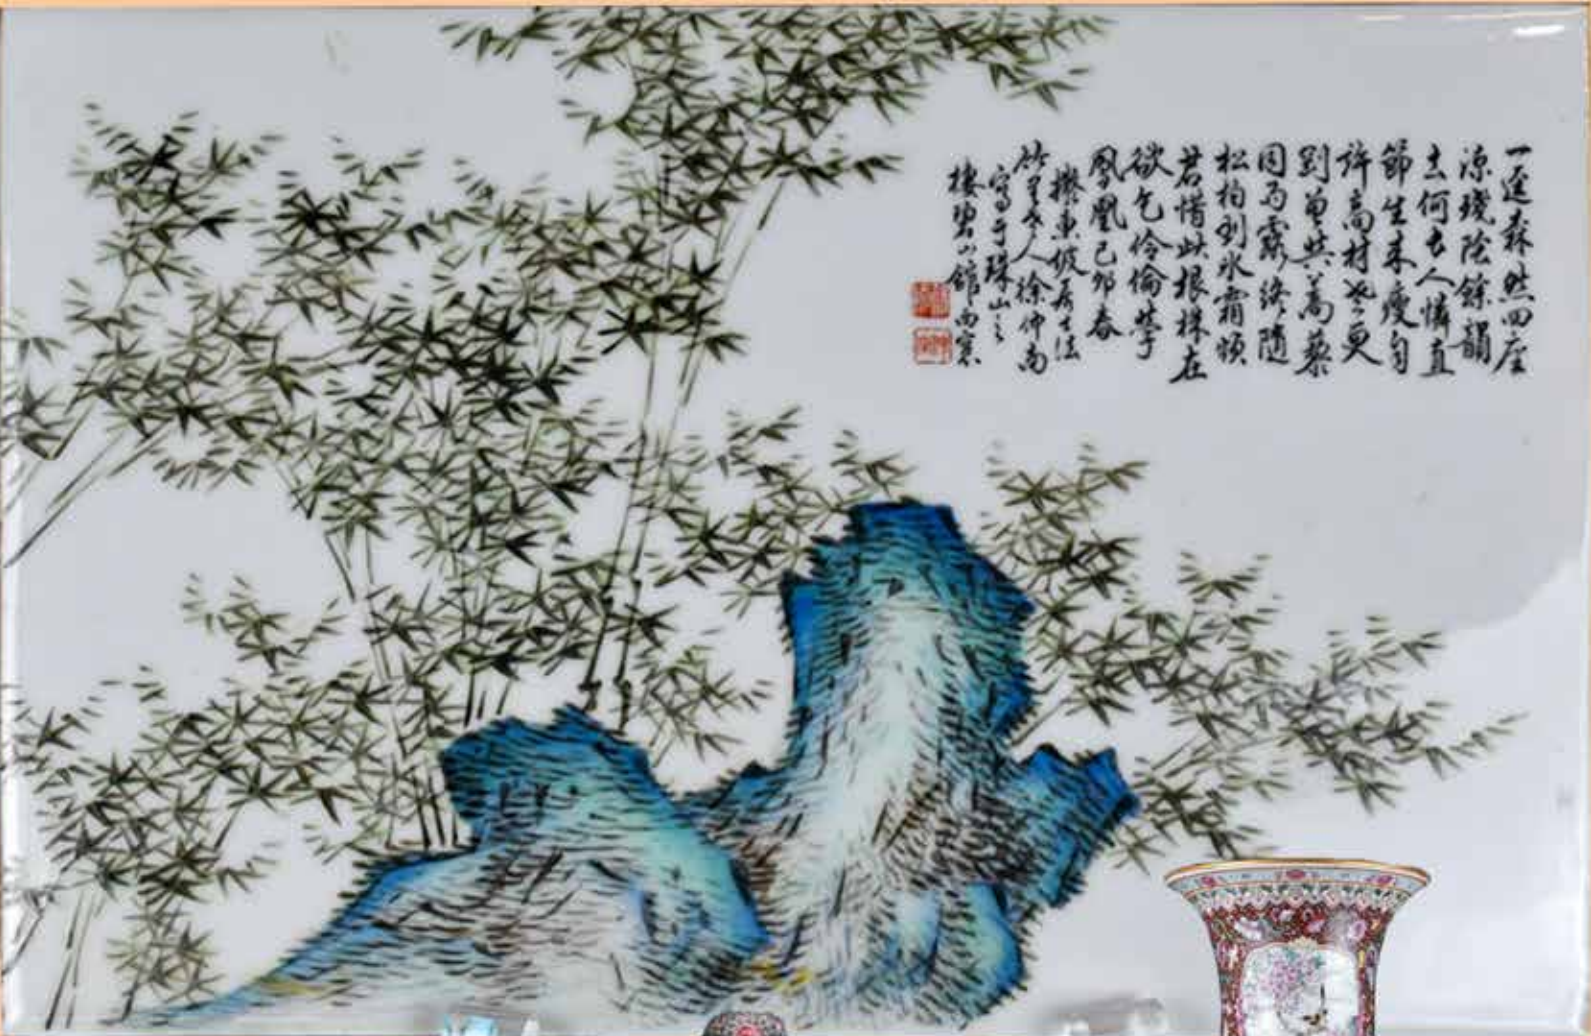 一逕森然四座
凉殘陰餘韻
去何長人憐直
節生来瘦自
許高材老更
剛曾與蒿藜
同雨露終隨
松柏到冰霜煩
君惜此根株在
欲乞伶倫學
鳳凰己卯春
擬東坡居士法
竹里老人徐仲南
寫于珠山之
棲碧山館南窓